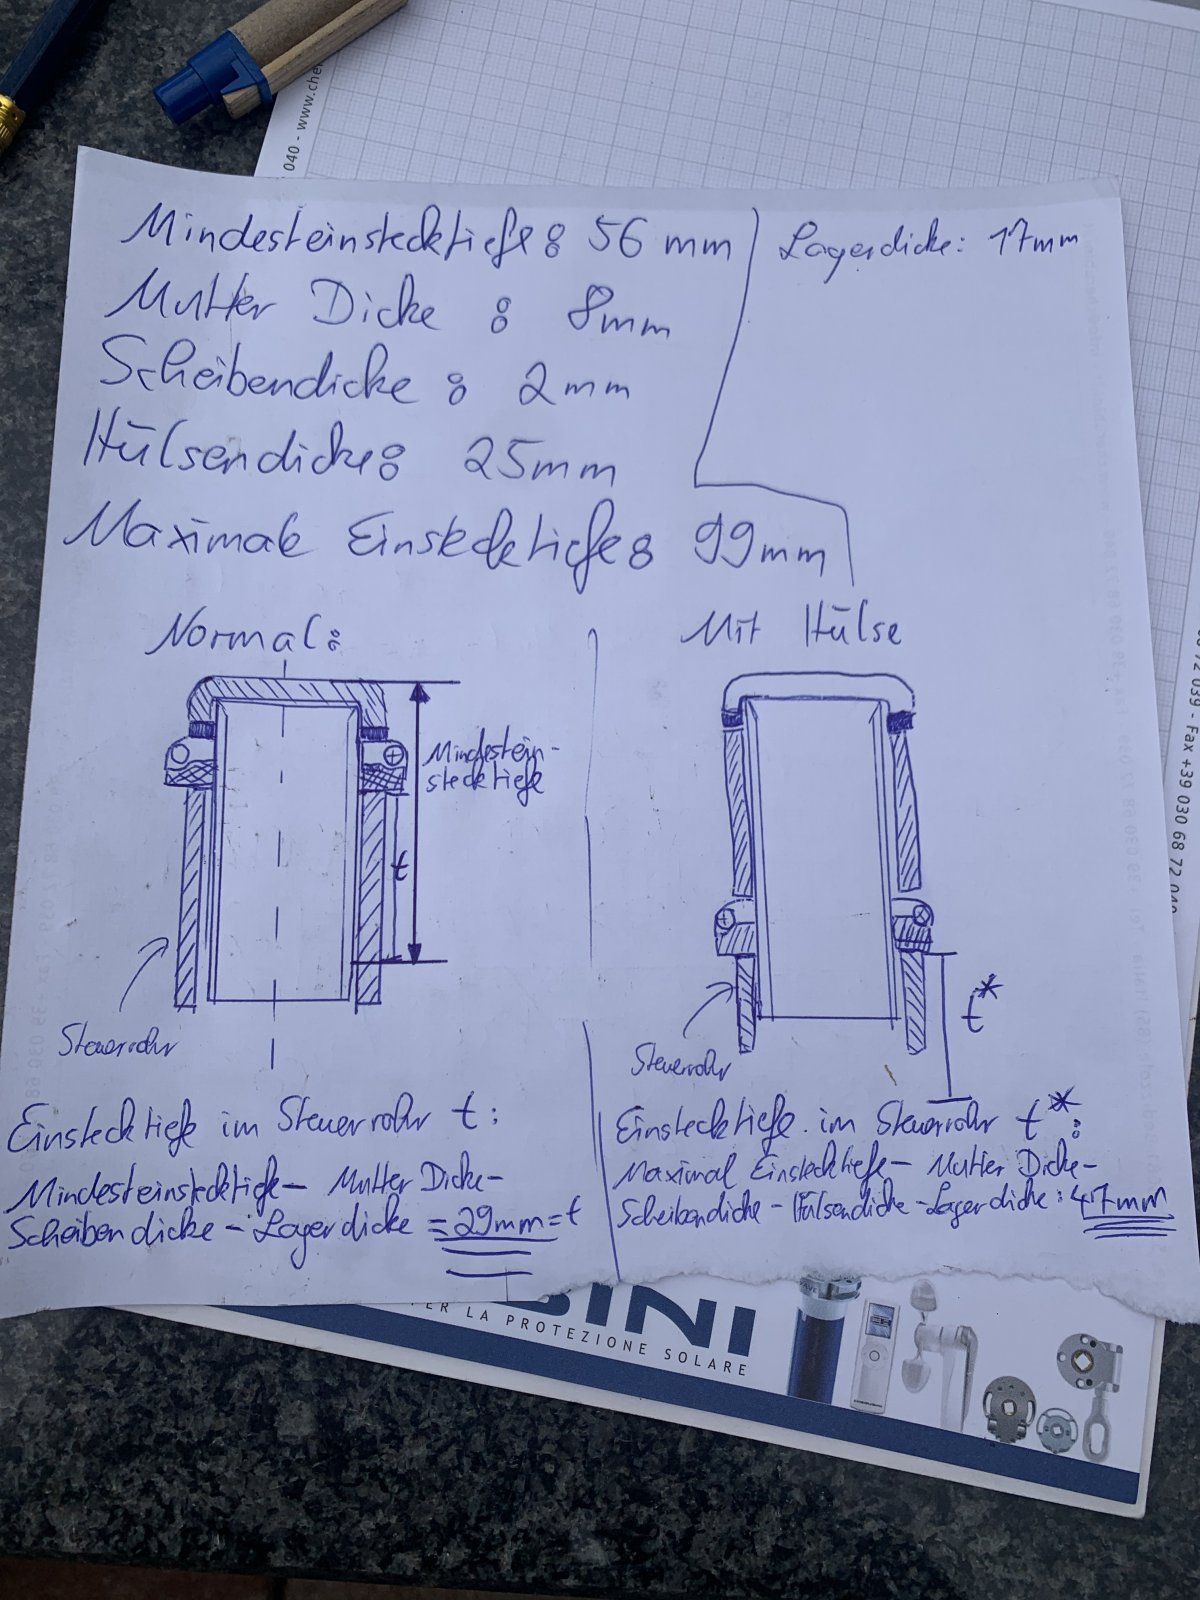 040 - www.che
Mindesteinstecktiefe: 56 mm
Lagerdicke: 17mm
Mutter Dicke : 8mm
Scheibendicke : 2mm
Hülsendicke: 25mm
Maximale Einstecktiefe: 99mm
Normal:
Mit Hülse
Mindestein-
stecktiefe
t
Steuerrohr
t*
Steuerrohr
Einstecktiefe im Steuerrohr t:
Mindesteinstecktiefe- Mutter Dicke-
Scheibendicke - Lagerdicke = 29mm = t
Einstecktiefe im Steuerrohr t*:
Maximal Einstecktiefe- Mutter Dicke-
Scheibendicke - Hülsendicke - Lagerdicke: 47mm
72 039 - Fax +39 030 68 72 040
BINI
PER LA PROTEZIONE SOLARE